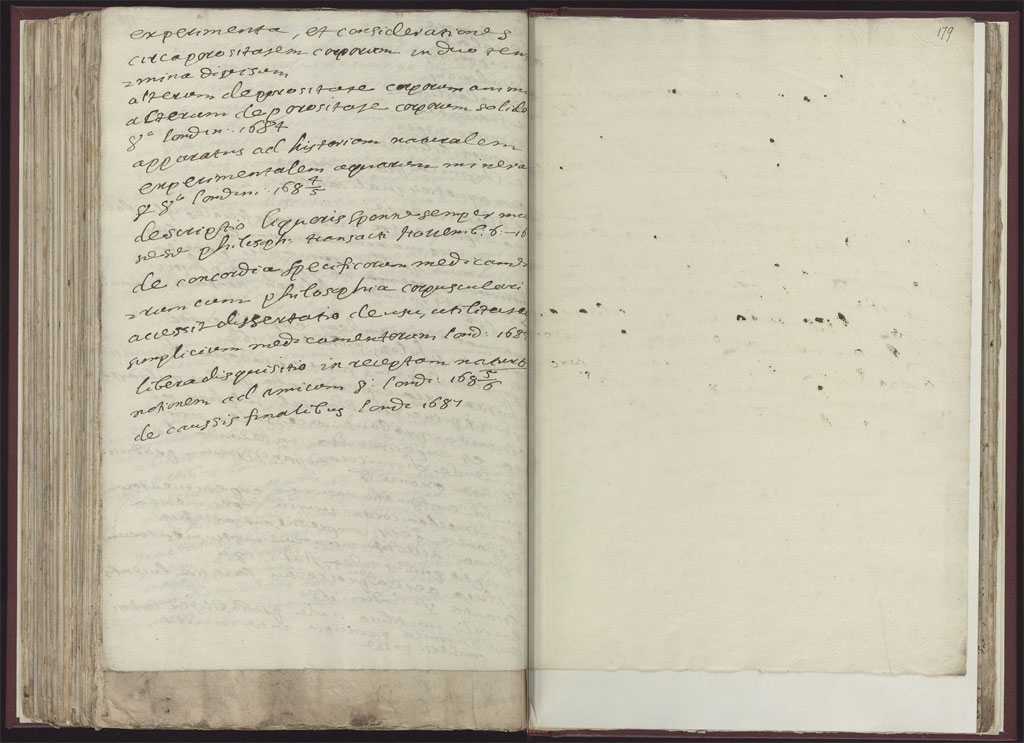 experimenta, et considerationes
circa porositatem corporum in duo ter
mina divisum
alterum de porositate corporum anim
alterum de porositate corporum solido
8° londin: 1684
apparatus ad historiam naturalem
experimentalem aquarum minera
8° londin: 168 4/5
descriptio liquoris sponte semper
philosoph: transacti Novemb: 6 - 16
de concordia specificorum medicamen
rum cum philosophia corpusculari
accessit dissertatio de usu, utilitate
simplicium medicamentorum lond: 168
libera disquisitio in receptam natur
notionem ad amicum 8: londi: 168 5/6
de caussis finalibus londi 1687
179